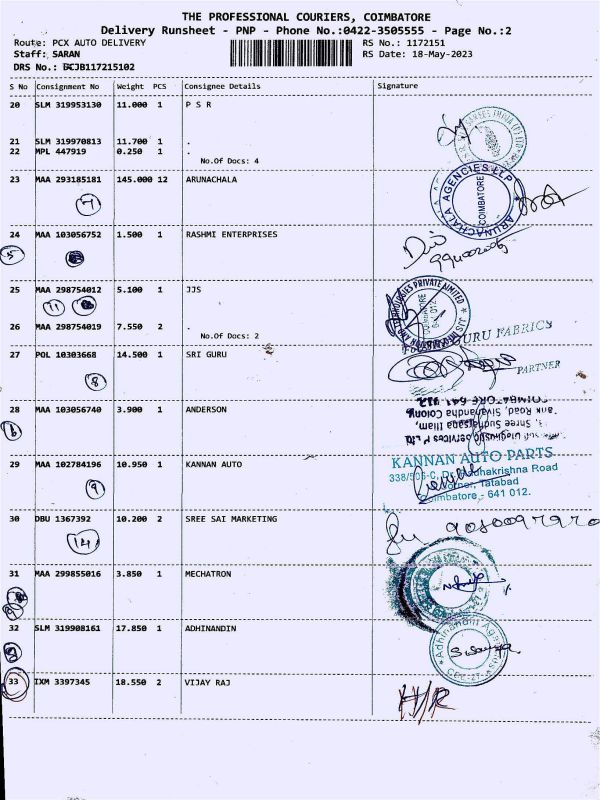 THE PROFESSIONAL COURIERS, COIMBATORE
Delivery Runsheet - PNP - Phone No.:0422-3505555 - Page No.:2
Route: PCX AUTO DELIVERY RS No.: 1172151
Staff: SARAN RS Date: 18-May-2023
DRS No.: BCJB117215102
S No Consignment No Weight PCS Consignee Details Signature
20 SLM 319953130 11.000 1 P S R
21 SLM 319970813 11.700 1 .
22 MPL 447919 0.250 1 .
No.Of Docs: 4
23 MAA 293185181 145.000 12 ARUNACHALA
ARUNACHALA AGENCIES LLP
COIMBATORE
7
24 MAA 103056752 1.500 1 RASHMI ENTERPRISES
5
25 MAA 298754012 5.100 1 JJS
PRIVATE LIMITED
11
26 MAA 298754019 7.550 2 .
No.Of Docs: 2
GURU FABRICS
27 POL 10303668 14.500 1 SRI GURU
PARTNER
8
28 MAA 103056740 3.900 1 ANDERSON
COIMBATORE 641 012
Road, Sivanandha Colony
29 MAA 102784196 10.950 1 KANNAN AUTO
KANNAN AUTO PARTS
Radhakrishna Road
Tatabad
Coimbatore - 641 012.
9
30 DBU 1367392 10.200 2 SREE SAI MARKETING
14
31 MAA 299855016 3.850 1 MECHATRON
32 SLM 319908161 17.850 1 ADHINANDIN
33 IXM 3397345 18.550 2 VIJAY RAJ
H/R